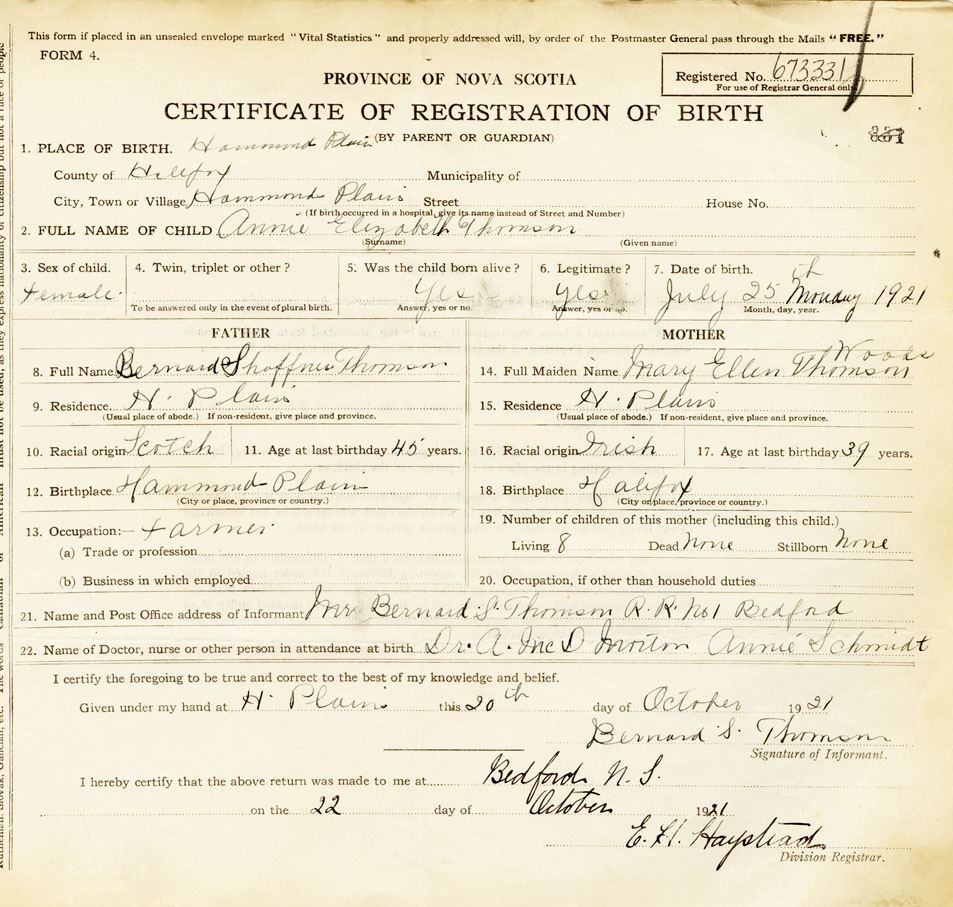 This form if placed in an unsealed envelope marked "Vital Statistics" and properly addressed will, by order of the Postmaster General pass through the Mails "FREE."
FORM 4.
Registered No. 673331
For use of Registrar General only
PROVINCE OF NOVA SCOTIA
CERTIFICATE OF REGISTRATION OF BIRTH
(BY PARENT OR GUARDIAN)
1. PLACE OF BIRTH. Hammond Plain
County of Halifax Municipality of
City, Town or Village Hammond Plains Street House No.
(If birth occurred in a hospital, give its name instead of Street and Number)
2. FULL NAME OF CHILD Annie Elizabeth Thomson
(Surname) (Given name)
3. Sex of child. 4. Twin, triplet or other? 5. Was the child born alive? 6. Legitimate? 7. Date of birth.
Female. Yes Yes July 25th Monday 1921
To be answered only in the event of plural birth. Answer, yes or no. Answer, yes or no. Month, day, year.
FATHER MOTHER
8. Full Name Bernard Shaffner Thomson 14. Full Maiden Name Mary Ellen Thomson Woods
9. Residence. H. Plain 15. Residence H. Plains
(Usual place of abode.) If non-resident, give place and province. (Usual place of abode.) If non-resident, give place and province.
10. Racial origin Scotch 11. Age at last birthday 45 years. 16. Racial origin Irish 17. Age at last birthday 39 years.
12. Birthplace Hammond Plain 18. Birthplace Halifax
(City or place, province or country.) (City or place, province or country.)
13. Occupation:— Farmer 19. Number of children of this mother (including this child.)
(a) Trade or profession Living 8 Dead None Stillborn None
(b) Business in which employed 20. Occupation, if other than household duties
21. Name and Post Office address of Informant Mr Bernard S. Thomson R.R. No 1 Bedford
22. Name of Doctor, nurse or other person in attendance at birth Dr. A. McD Morton Annie Schmidt
I certify the foregoing to be true and correct to the best of my knowledge and belief.
Given under my hand at H. Plains this 20th day of October 1921
Bernard S. Thomson
Signature of Informant.
I hereby certify that the above return was made to me at Bedford N. S.
on the 22 day of October 1921
E. H. Haystead
Division Registrar.